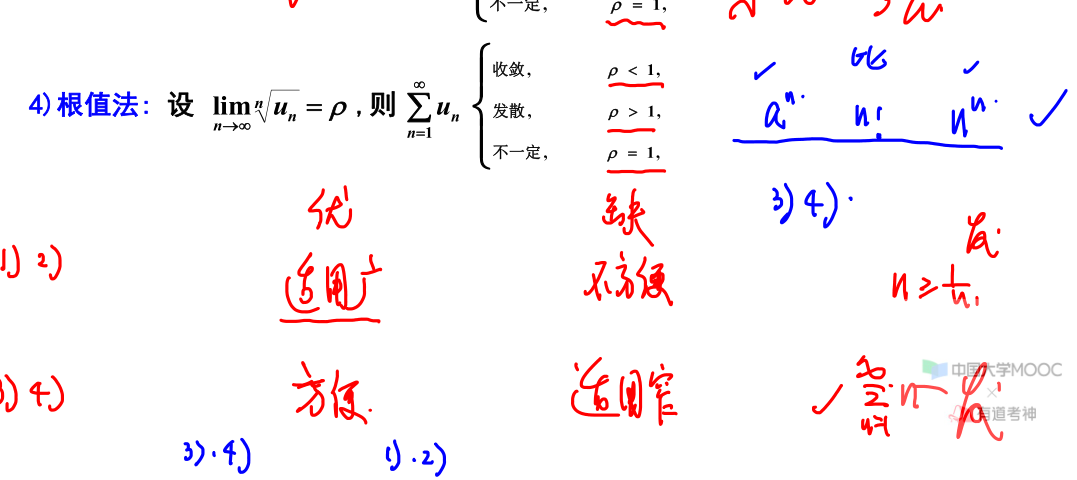 不一定， ρ = 1,
4) 根值法：设 lim n→∞ ⁿ√uₙ = ρ , 则 ∑ n=1 ∞ uₙ
收敛， ρ < 1,
发散， ρ > 1,
不一定， ρ = 1,
比
aⁿ n! nⁿ
3) 4)
优 缺
1) 2) 适用广 不方便
发
n ≥ 1/n
3) 4) 方便 适用窄
∞ ∑ n=1 n 发
中国大学MOOC
×
有道考神
3) 4) 1) 2)